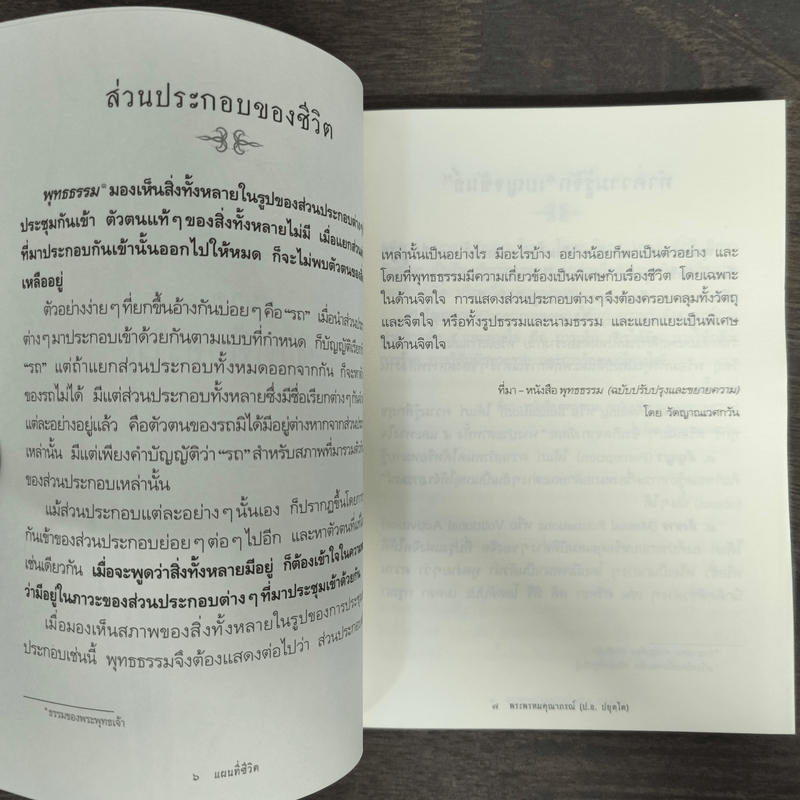 ส่วนประกอบของชีวิต
พุทธธรรม* มองเห็นสิ่งทั้งหลายในรูปของส่วนประกอบต่างๆ
ประชุมกันเข้า ตัวตนแท้ๆ ของสิ่งทั้งหลายไม่มี เมื่อแยกส่วน
ที่มาประกอบกันเข้านั้นออกไปให้หมด ก็จะไม่พบตัวตนของ
เหลืออยู่
ตัวอย่างง่ายๆ ที่ยกขึ้นอ้างกันบ่อยๆ คือ “รถ” เมื่อนำส่วน
ต่างๆ มาประกอบเข้าด้วยกันตามแบบที่กำหนด ก็บัญญัติเรียก
“รถ” แต่ถ้าแยกส่วนประกอบทั้งหมดออกจากกัน ก็จะหา
ของรถไม่ได้ มีแต่ส่วนประกอบทั้งหลายซึ่งมีชื่อเรียกต่างๆ กัน
แต่ละอย่างอยู่แล้ว คือตัวตนของรถมิได้มีอยู่ต่างหากจากส่วน
เหล่านั้น มีแต่เพียงคำบัญญัติว่า “รถ” สำหรับสภาพที่มารวมตัว
ของส่วนประกอบเหล่านั้น
แม้ส่วนประกอบแต่ละอย่างๆ นั้นเอง ก็ปรากฏขึ้นโดย
กันเข้าของส่วนประกอบย่อยๆ ต่อๆ ไปอีก และหาตัวตนที่
เช่นเดียวกัน เมื่อจะพูดว่าสิ่งทั้งหลายมีอยู่ ก็ต้องเข้าใจในความ
ว่ามีอยู่ในภาวะของส่วนประกอบต่างๆ ที่มาประชุมเข้าด้วยกัน
เมื่อมองเห็นสภาพของสิ่งทั้งหลายในรูปของการประชุม
ประกอบเช่นนี้ พุทธธรรมจึงต้องแสดงต่อไปว่า ส่วนประกอบ
*ธรรมของพระพุทธเจ้า
๖ แผนที่ชีวิต
เหล่านั้นเป็นอย่างไร มีอะไรบ้าง อย่างน้อยก็พอเป็นตัวอย่าง และ
โดยที่พุทธธรรมมีความเกี่ยวข้องเป็นพิเศษกับเรื่องชีวิต โดยเฉพาะ
ในด้านจิตใจ การแสดงส่วนประกอบต่างๆ จึงต้องครอบคลุมทั้งวัตถุ
และจิตใจ หรือทั้งรูปธรรมและนามธรรม และแยกแยะเป็นพิเศษ
ในด้านจิตใจ
ที่มา – หนังสือ พุทธธรรม (ฉบับปรับปรุงและขยายความ)
โดย วัดญาณเวศกวัน
๗ พระพรหมคุณาภรณ์ (ป.อ. ปยุตฺโต)